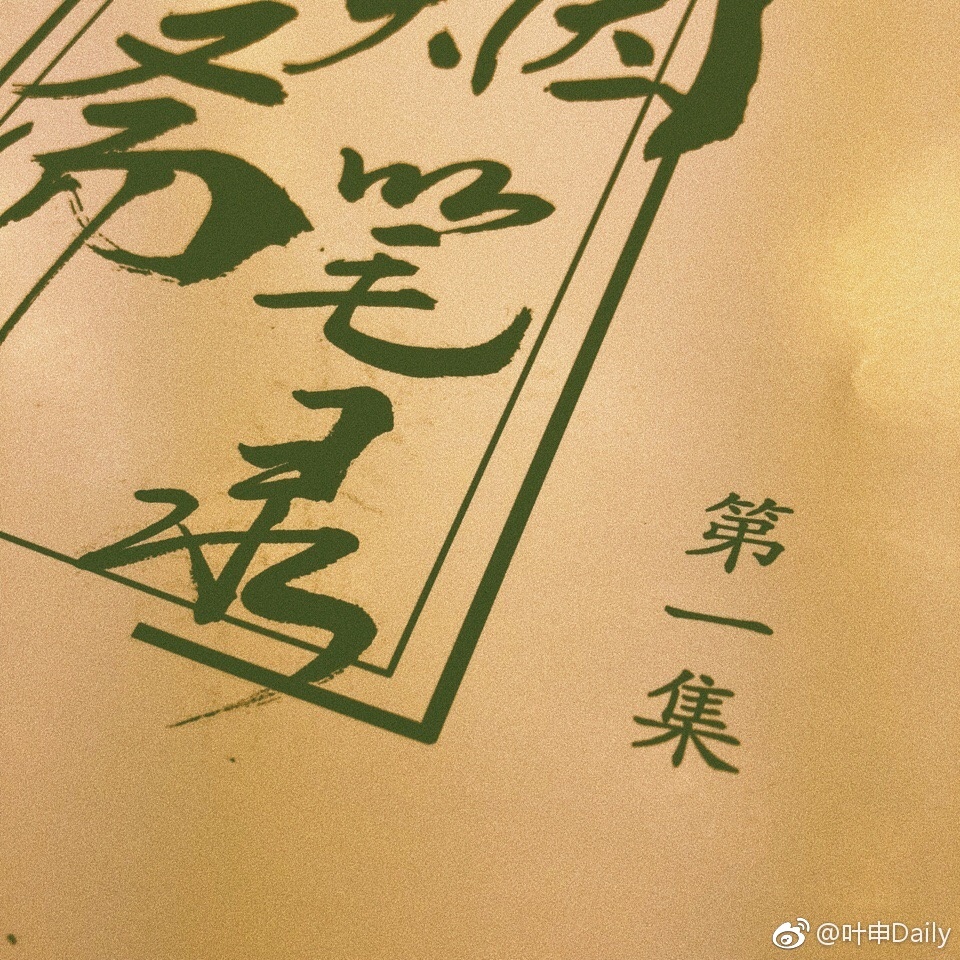 烟斋笔录
第一集
@叶申Daily